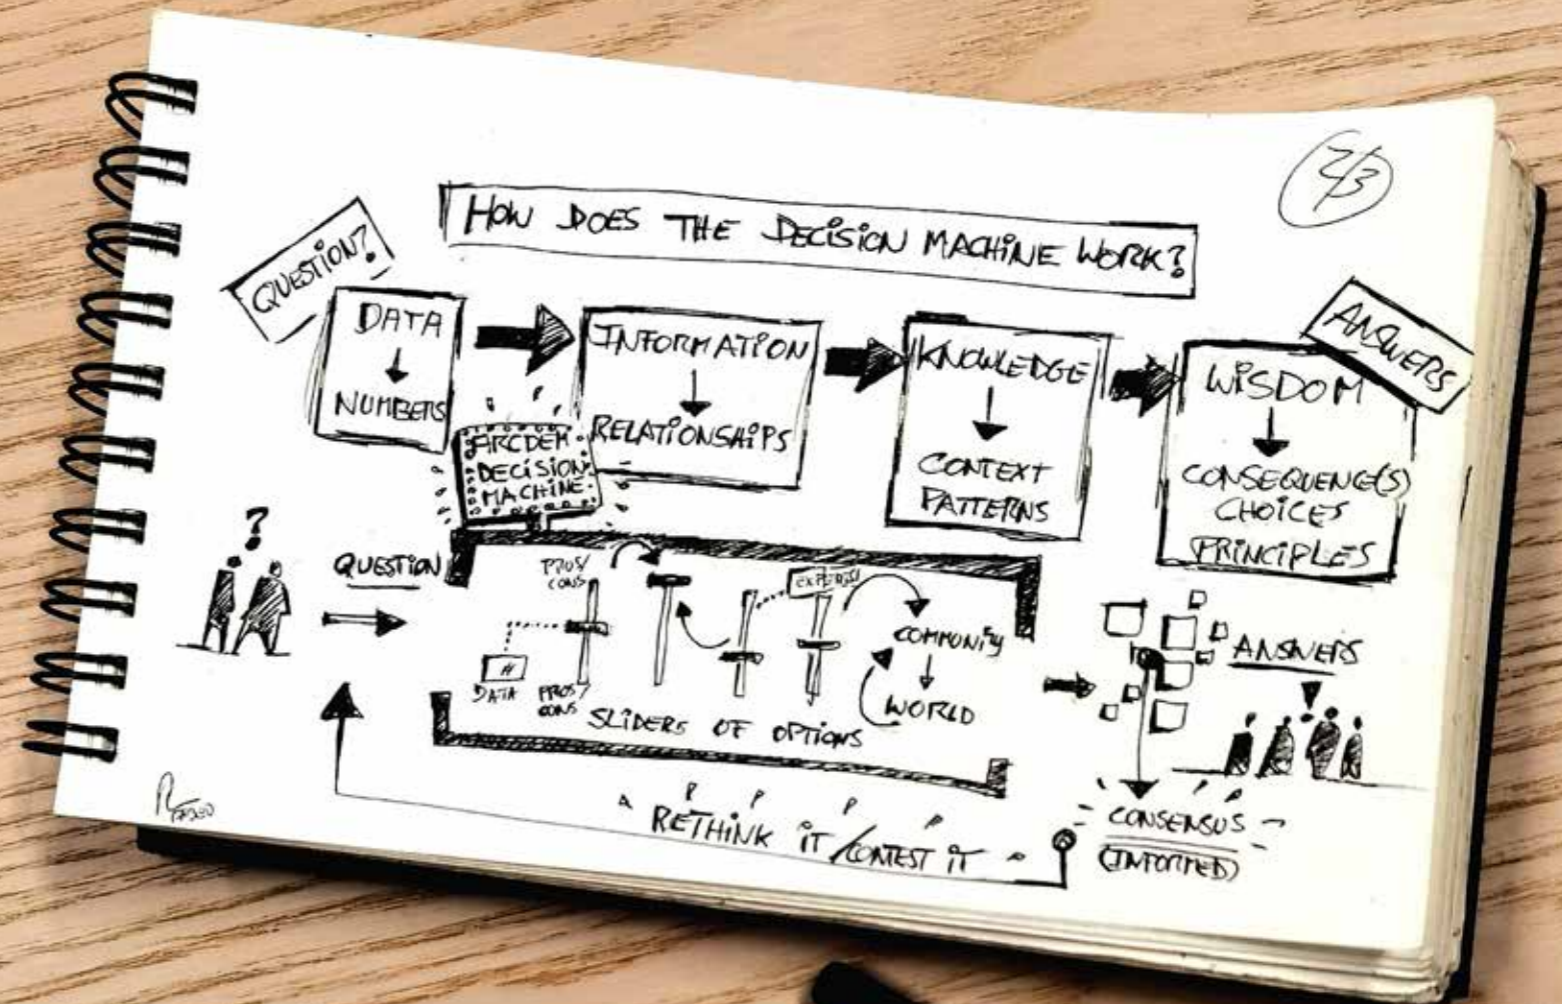 2/3
HOW DOES THE DECISION MACHINE WORK?
QUESTION?
DATA
NUMBERS
INFORMATION
RELATIONSHIPS
KNOWLEDGE
CONTEXT
PATTERNS
ANSWERS
WISDOM
CONSEQUENCE(S)
CHOICES
PRINCIPLES
ARCDEM
DECISION
MACHINE
?
QUESTION
PROS/
CONS
#
DATA
PROS/
CONS
SLIDERS OF OPTIONS
COMMUNITY
WORLD
ANSWERS
RETHINK IT / CONTEST IT
CONSENSUS
(INFORMED)